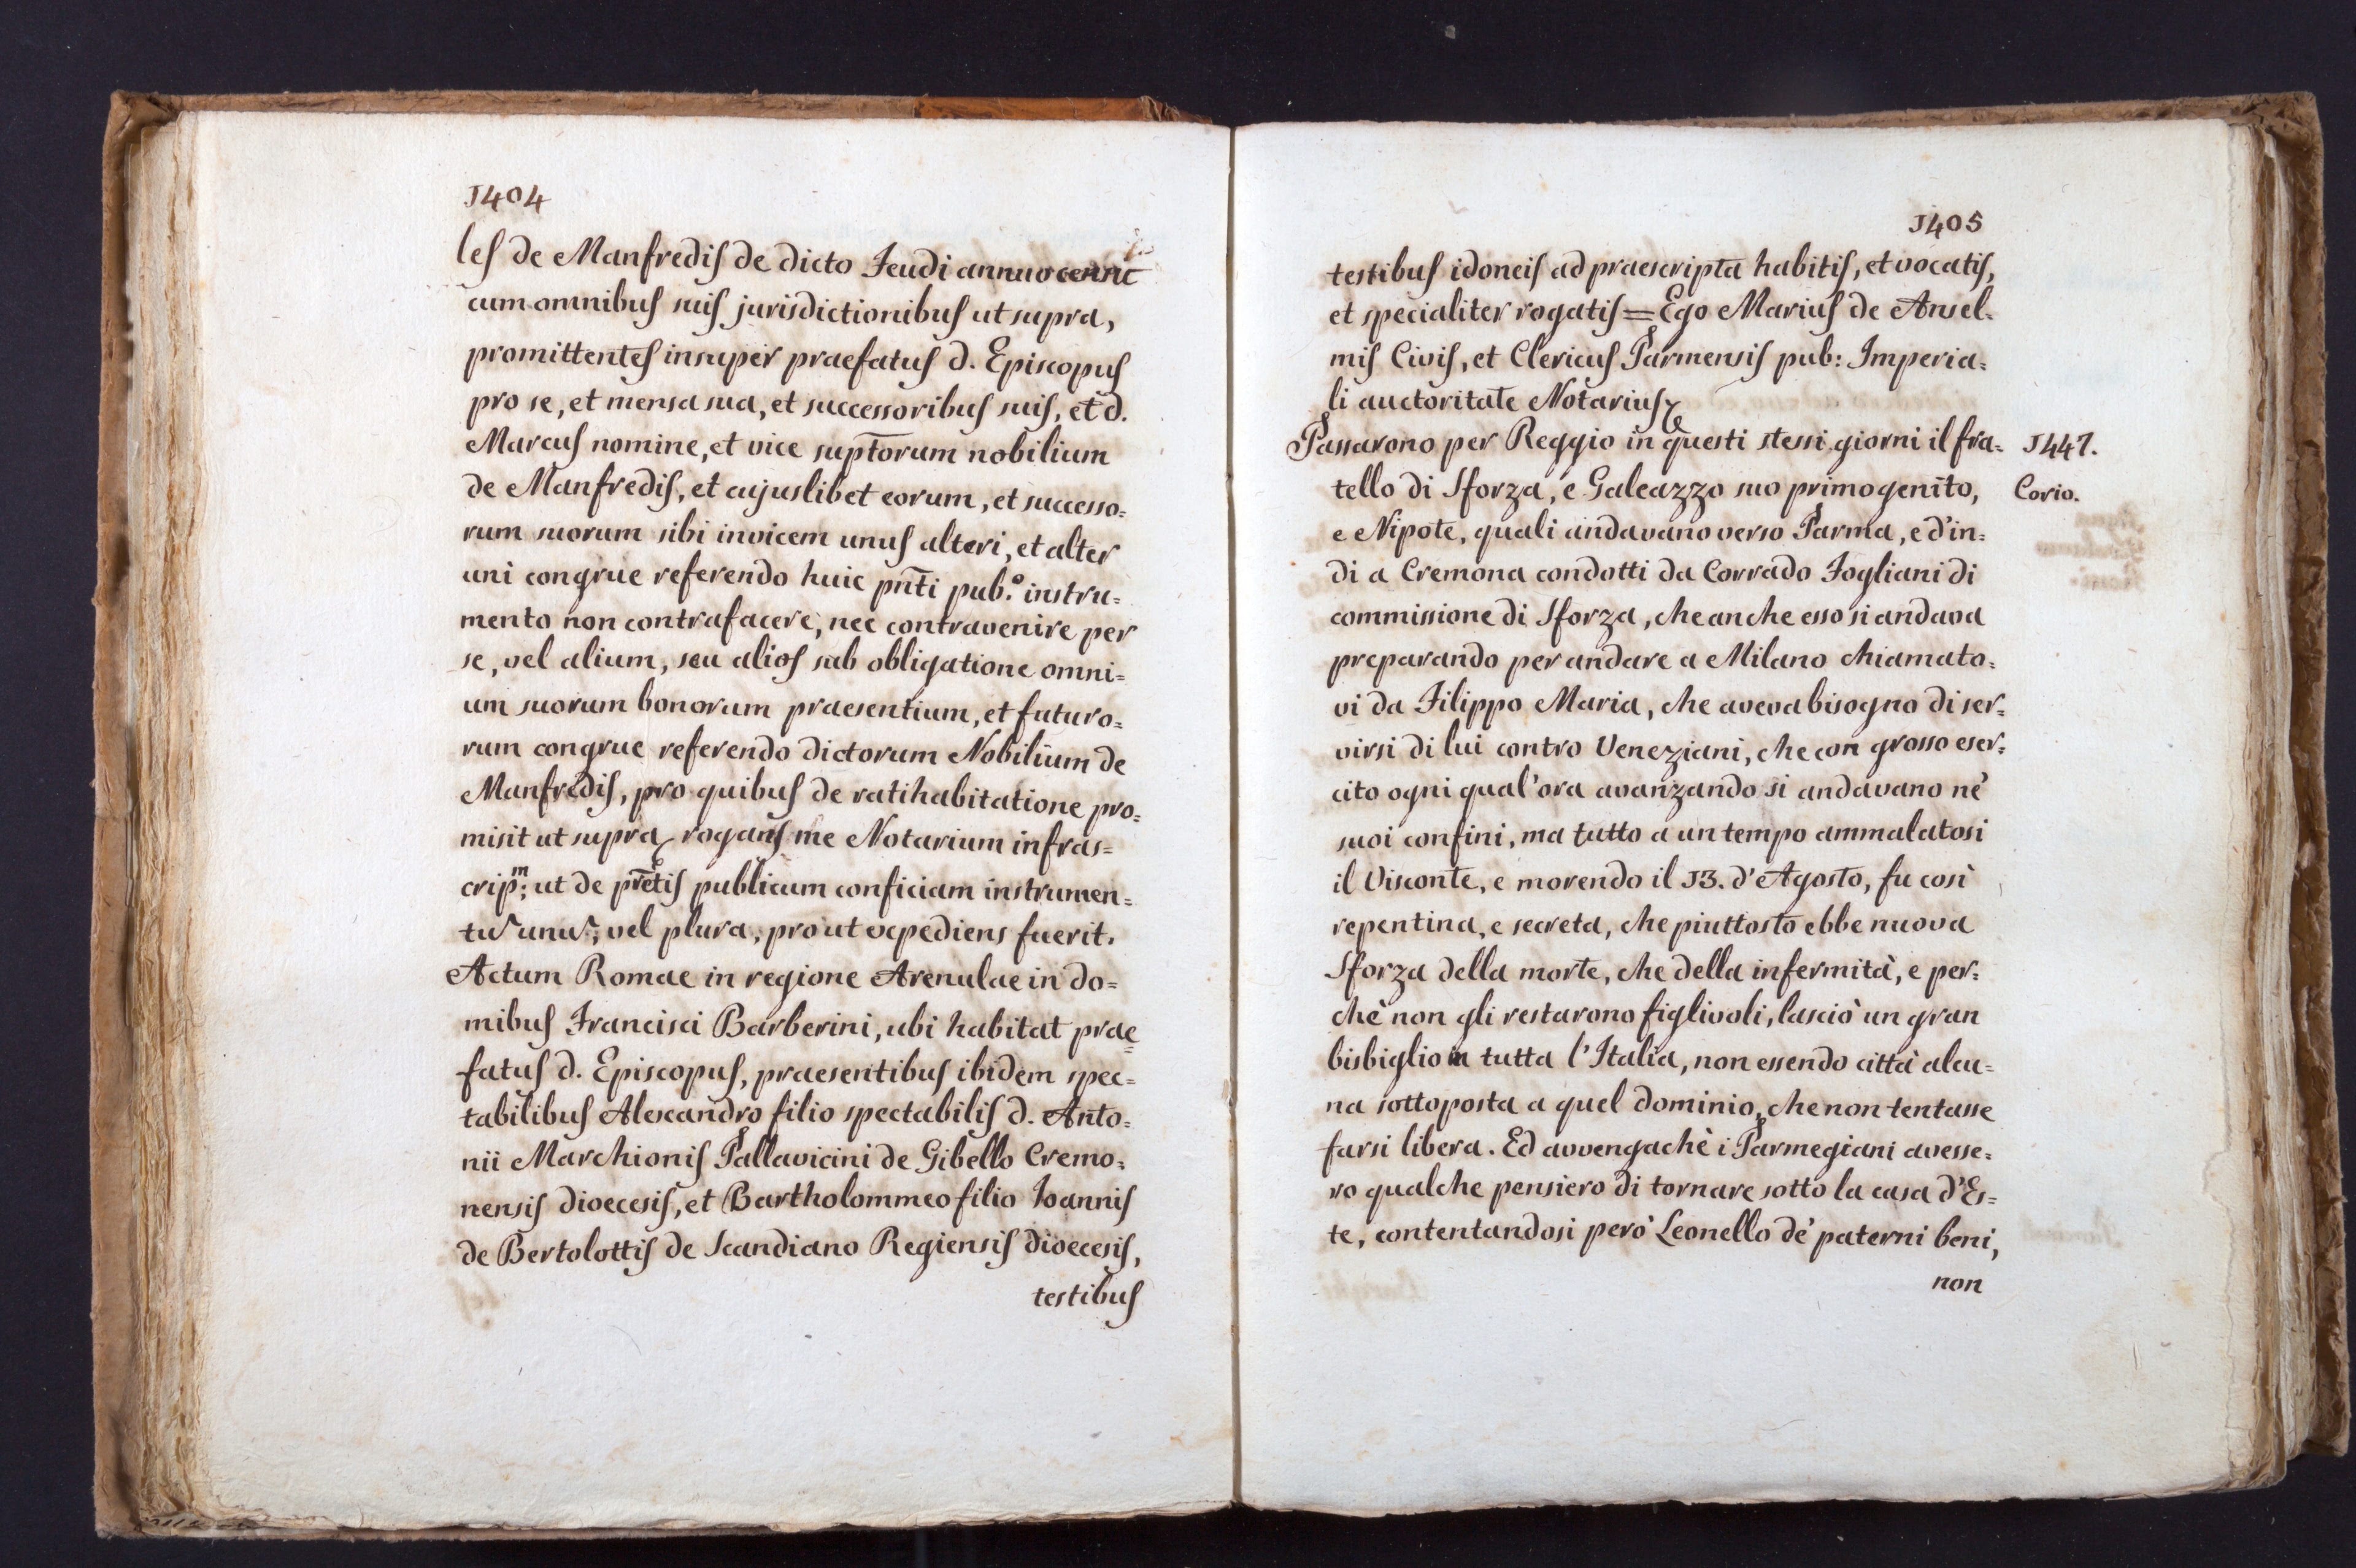 1404
les de Manfredis de dicto Feudi annuo censu
cum omnibus suis jurisdictionibus ut supra,
promittentes insuper praefatus d. Episcopus
pro se, et mensa sua, et successoribus suis, et d.
Marcus nomine, et vice suptorum nobilium
de Manfredis, et cujuslibet eorum, et successo=
rum suorum sibi invicem unus alteri, et alter
uni congrue referendo huic pnti pub.° instru=
mento non contrafacere, nec contravenire per
se, vel alium, seu alios sub obligatione omni=
um suorum bonorum praesentium, et futuro=
rum congrue referendo dictorum Nobilium de
Manfredis, pro quibus de ratihabitatione pro=
misit ut supra rogans me Notarium infras=
crip.m; ut de pretis publicum conficiam instrumen=
tu unu, vel plura, prout expediens fuerit.
Actum Romae in regione Arenulae in do=
mibus Francisci Barberini, ubi habitat prae=
fatus d. Episcopus, praesentibus ibidem spec=
tabilibus Alexandro filio spectabilis d. Anto=
nii Marchionis Pallavicini de Gibello Cremo=
nensis dioecesis, et Bartholommeo filio Ioannis
de Bertolottis de Scandiano Regiensis dioecesis,
testibus
1405
testibus idoneis ad praescripta habitis, et vocatis,
et specialiter rogatis = Ego Marius de Ansel=
mis Civis, et Clericus Parmensis pub: Imperia=
li auctoritate Notarius
Passarono per Reggio in questi stessi giorni il fra=
1447.
tello di Sforza, e Galeazzo suo primogenito,
Corio.
e Nipote, quali andavano verso Parma, e d'in=
di a Cremona condotti da Corrado Fogliani di
commissione di Sforza, che anche esso si andava
preparando per andare a Milano chiamato=
vi da Filippo Maria, che aveva bisogno di ser=
virsi di lui contro Veneziani, che con grosso eser=
cito ogni qual'ora avanzando si andavano ne'
suoi confini, ma tutto a un tempo ammalatosi
il Visconte, e morendo il 13. d'Agosto, fu così
repentina, e secreta, che piuttosto ebbe nuova
Sforza della morte, che della infermità, e per=
chè non gli restarono figlivoli, lasciò un gran
bisbiglio in tutta l'Italia, non essendo città alcu=
na sottoposta a quel dominio, che non tentasse
farsi libera. Ed avvengachè i Parmegiani avesse=
ro qualche pensiero di tornare sotto la casa d'Es=
te, contentandosi però Leonello de' paterni beni,
non